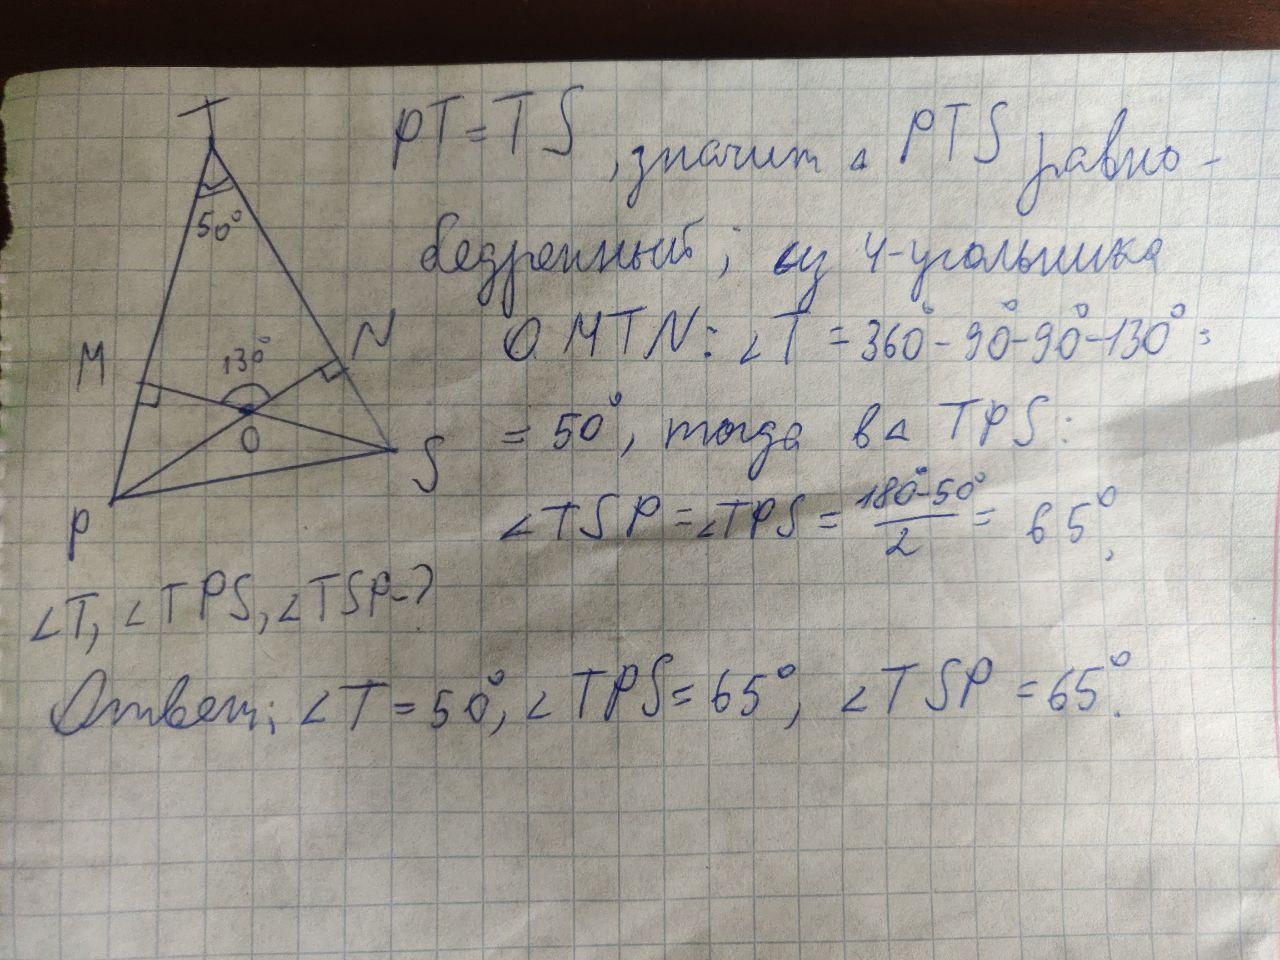 T
50°
M
N
130°
O
S
P
PT=TS, значит △ PTS равно-
бедренный; из 4-угольника
OMTN: ∠T = 360° - 90° - 90° - 130° =
= 50°, тогда в △ TPS:
∠TSP = ∠TPS = (180° - 50°)/2 = 65°,
∠T, ∠TPS, ∠TSP-?
Ответ: ∠T = 50°, ∠TPS = 65°, ∠TSP = 65°.